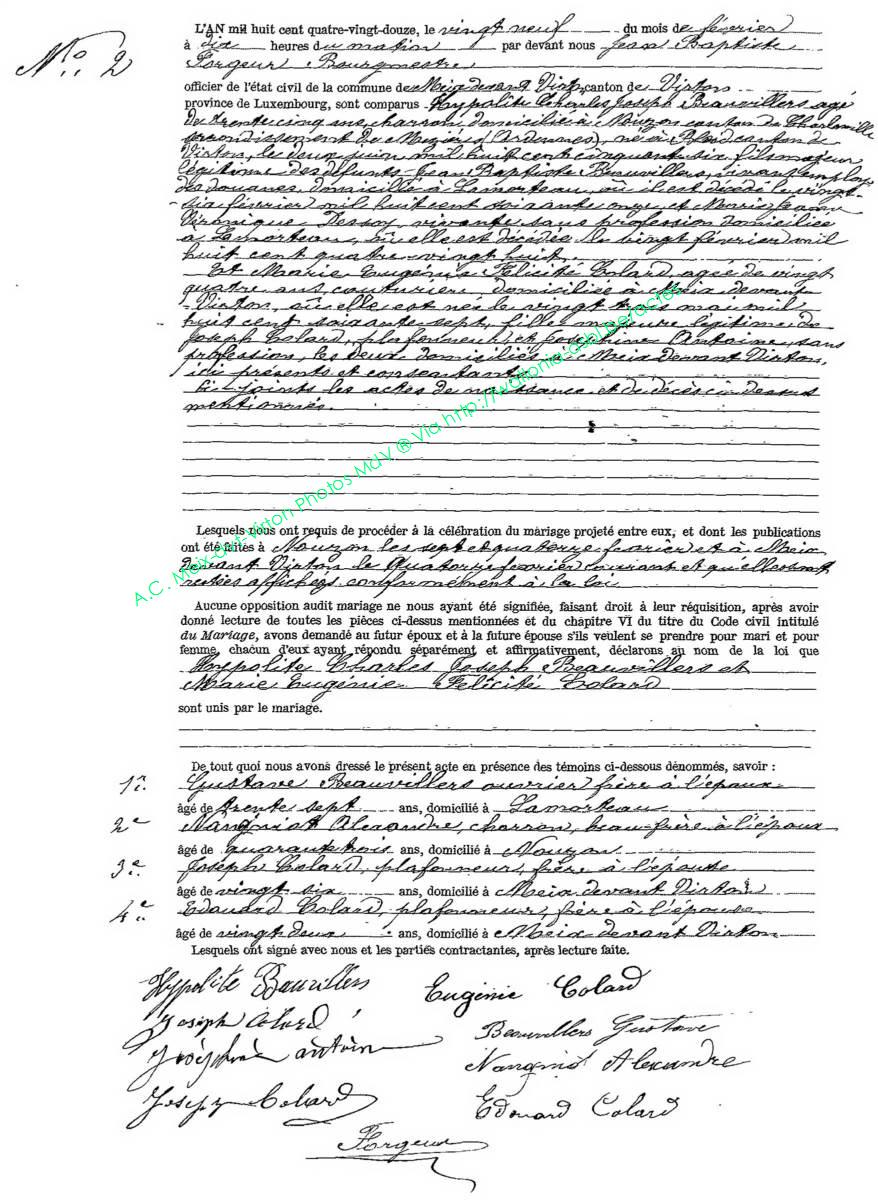 No: 2
L'AN mil huit cent quatre-vingt-douze, le vingt neuf du mois de février
à dix heures du matin par devant nous Jean Baptiste
Forgeur Bourgmestre
officier de l'état civil de la commune de Meix devant Virton, canton de Virton
province de Luxembourg, sont comparus Hyppolite Charles Joseph Beauvillers, agé
de trente cinq ans, charron, domicilié à Nouzon canton de Charleville
arrondissement de Mézières (Ardennes), né à canton de
Virton, le deux juin mil huit cent cinquante six, fils majeur
légitime des défunts Jean Baptiste Beauvillers, vivant employé
des douanes, domicilié à Lamorteau, où il est décédé le vingt-
six février mil huit cent soixante onze et Marie Jeanne
Véronique Dessoy, vivante sans profession domiciliée
à Lamorteau, où elle est décédée le vingt février mil
huit cent quatre-vingt huit.
Et Marie Eugénie Félicité Colard, agée de vingt
quatre ans couturière, domiciliée à Meix devant
Virton, où elle est née le vingt trois mai mil
huit cent soixante sept, fille majeure légitime de
Joseph Colard, plafonneur, et Joséphine Antoine, sans
profession, les deux domiciliés à Meix devant Virton,
ici présents et consentants
Ci-joints les actes de naissance et de décès ci-dessus
mentionnés.
Lesquels nous ont requis de procéder à la célébration du mariage projeté entre eux, et dont les publications
ont été faites à Nouzon les sept et quatorze février et à Meix
devant Virton le quatorze février courant et qu'elles sont
restées affichées conformément à la loi
Aucune opposition audit mariage ne nous ayant été signifiée, faisant droit à leur réquisition, après avoir
donné lecture de toutes les pièces ci-dessus mentionnées et du chapitre VI du titre du Code civil intitulé
du Mariage, avons demandé au futur époux et à la future épouse s'ils veulent se prendre pour mari et pour
femme, chacun d'eux ayant répondu séparément et affirmativement, déclarons au nom de la loi que
Hyppolite Charles Joseph Beauvillers et
Marie Eugénie Félicité Colard
sont unis par le mariage.
De tout quoi nous avons dressé le présent acte en présence des témoins ci-dessous dénommés, savoir :
1r. Gustave Beauvillers ouvrier frère à l'époux
âgé de trente sept ans, domicilié à Lamorteau
2e Nanquiot Alexandre, charron, beau-frère à l'époux
âgé de quarante trois ans, domicilié à Nouzon
3e. Joseph Colard, plafonneur, frère à l'épouse
âgé de vingt six ans, domicilié à Meix devant Virton
4e. Edouard Colard, plafonneur, frère à l'épouse
âgé de vingt deux ans, domicilié à Meix devant Virton
Lesquels ont signé avec nous et les parties contractantes, après lecture faite.
Hyppolite Bauvillers Eugénie Colard
Joseph Colard
Beauvillers Gustave
Joséphine antoine
Alexandre
Joseph Colard Edouard Colard
Forgeur
A.C. Meix-dvt-Virton Photos MdV ® Via http://wallonia-asbl.be/actes